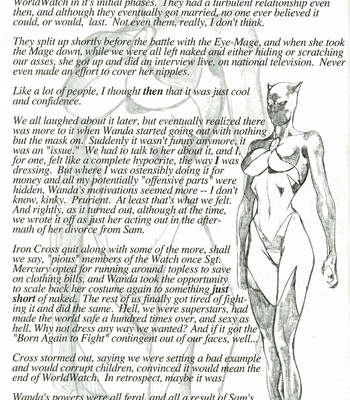 WorldWatch in it's initial phases.  They had a turbulent relationship even
then, and although they eventually got married, no one ever believed it
could, or would,  last.  Not even them, really, I don't think.
They split up shortly before the battle with the Eye-Mage, and when she took
the Mage down, while we were all left naked and either hiding or scratching
our asses, she got up and did an interview live, on national television.  Never
even made an effort to cover her nipples.
Like a lot of people, I thought then that it was just cool
and confidence.
We all laughed about it later, but eventually realized there
was more to it when Wanda started going out with nothing
but the mask on.  Suddenly it wasn't funny anymore, it
was an "issue."  We had to talk to her about it, and I,
for one, felt like a complete hypocrite, the way I was
dressing.  But where I was ostensibly doing it for
money and all my potentially "offensive parts" were
hidden, Wanda's motivations seemed more -- I don't
know, kinky.  Prurient.  At least that's what we felt.
And rightly, as it turned out, although at the time,
we wrote it off as just her acting out in the after-
math of her divorce from Sam.
Iron Cross quit along with some of the more, shall
we say, "pious" members of the Watch once Sgt.
Mercury opted for running around topless to save
on clothing bills, and Wanda took the opportunity
to scale back her costume again to something just
short of naked.  The rest of us finally got tired of fight-
ing it and did the same.  Hell, we were superstars, had
made the world safe a hundred times over, and sexy as
hell. Why not dress any way we wanted?  And if it got the
"Born Again to Fight" contingent out of our faces, well...
Cross stormed out, saying we were setting a bad example
and would corrupt children, convinced it would mean the
end of WorldWatch.  In retrospect, maybe it was.
Wanda's powers were all feral, and all a result of Sam's